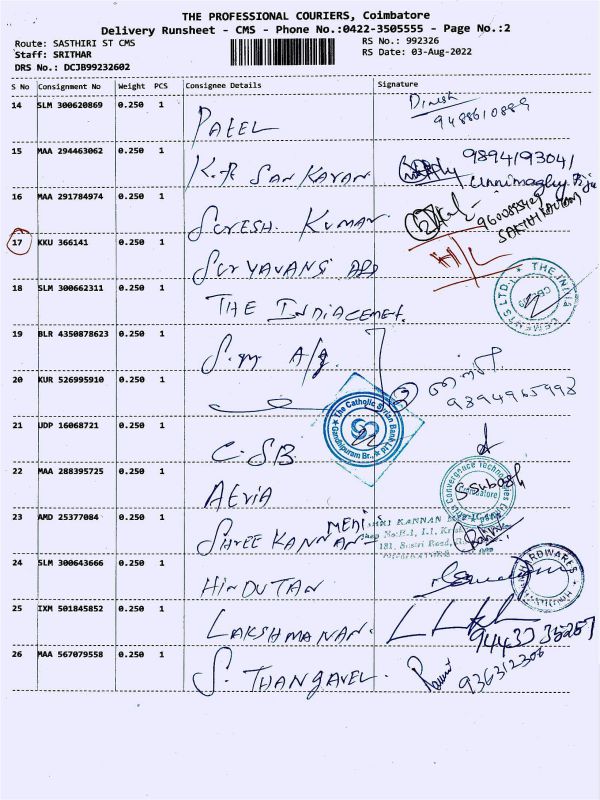 THE PROFESSIONAL COURIERS, Coimbatore
Delivery Runsheet - CMS - Phone No.:0422-3505555 - Page No.:2
Route: SASTHIRI ST CMS
RS No.: 992326
Staff: SRITHAR
RS Date: 03-Aug-2022
DRS No.: DCJB99232602
S No Consignment No Weight PCS Consignee Details Signature
14 SLM 300620869 0.250 1 PATEL Dinesh
9488610889
15 MAA 294463062 0.250 1 K.R SANKARAN 9894193041
16 MAA 291784974 0.250 1 SURESH KUMAR
17 KKU 366141 0.250 1 SURYAVANSI H/L
18 SLM 300662311 0.250 1 THE INDIACEMET. THE INDIA CEMENTS LTD.
19 BLR 4350878623 0.250 1 S.M A/g.
20 KUR 526995910 0.250 1
9894965998
The Catholic Syrian Bank Ltd
Gandhipuram Br.,
21 UDP 16068721 0.250 1 C.S.B.
22 MAA 288395725 0.250 1 AERIA S. Subash
Convergence Technologies
Coimbatore
23 AMD 25377084 0.250 1 SHREE KANNAN MEDI
KANNAN
181, Sastri Road,
24 SLM 300643666 0.250 1 HINDUTAN HARDWARES
25 IXM 501845852 0.250 1 LAKSHMANAN.
94433 35257
26 MAA 567079558 0.250 1 S. THANGAVEL.
936312306